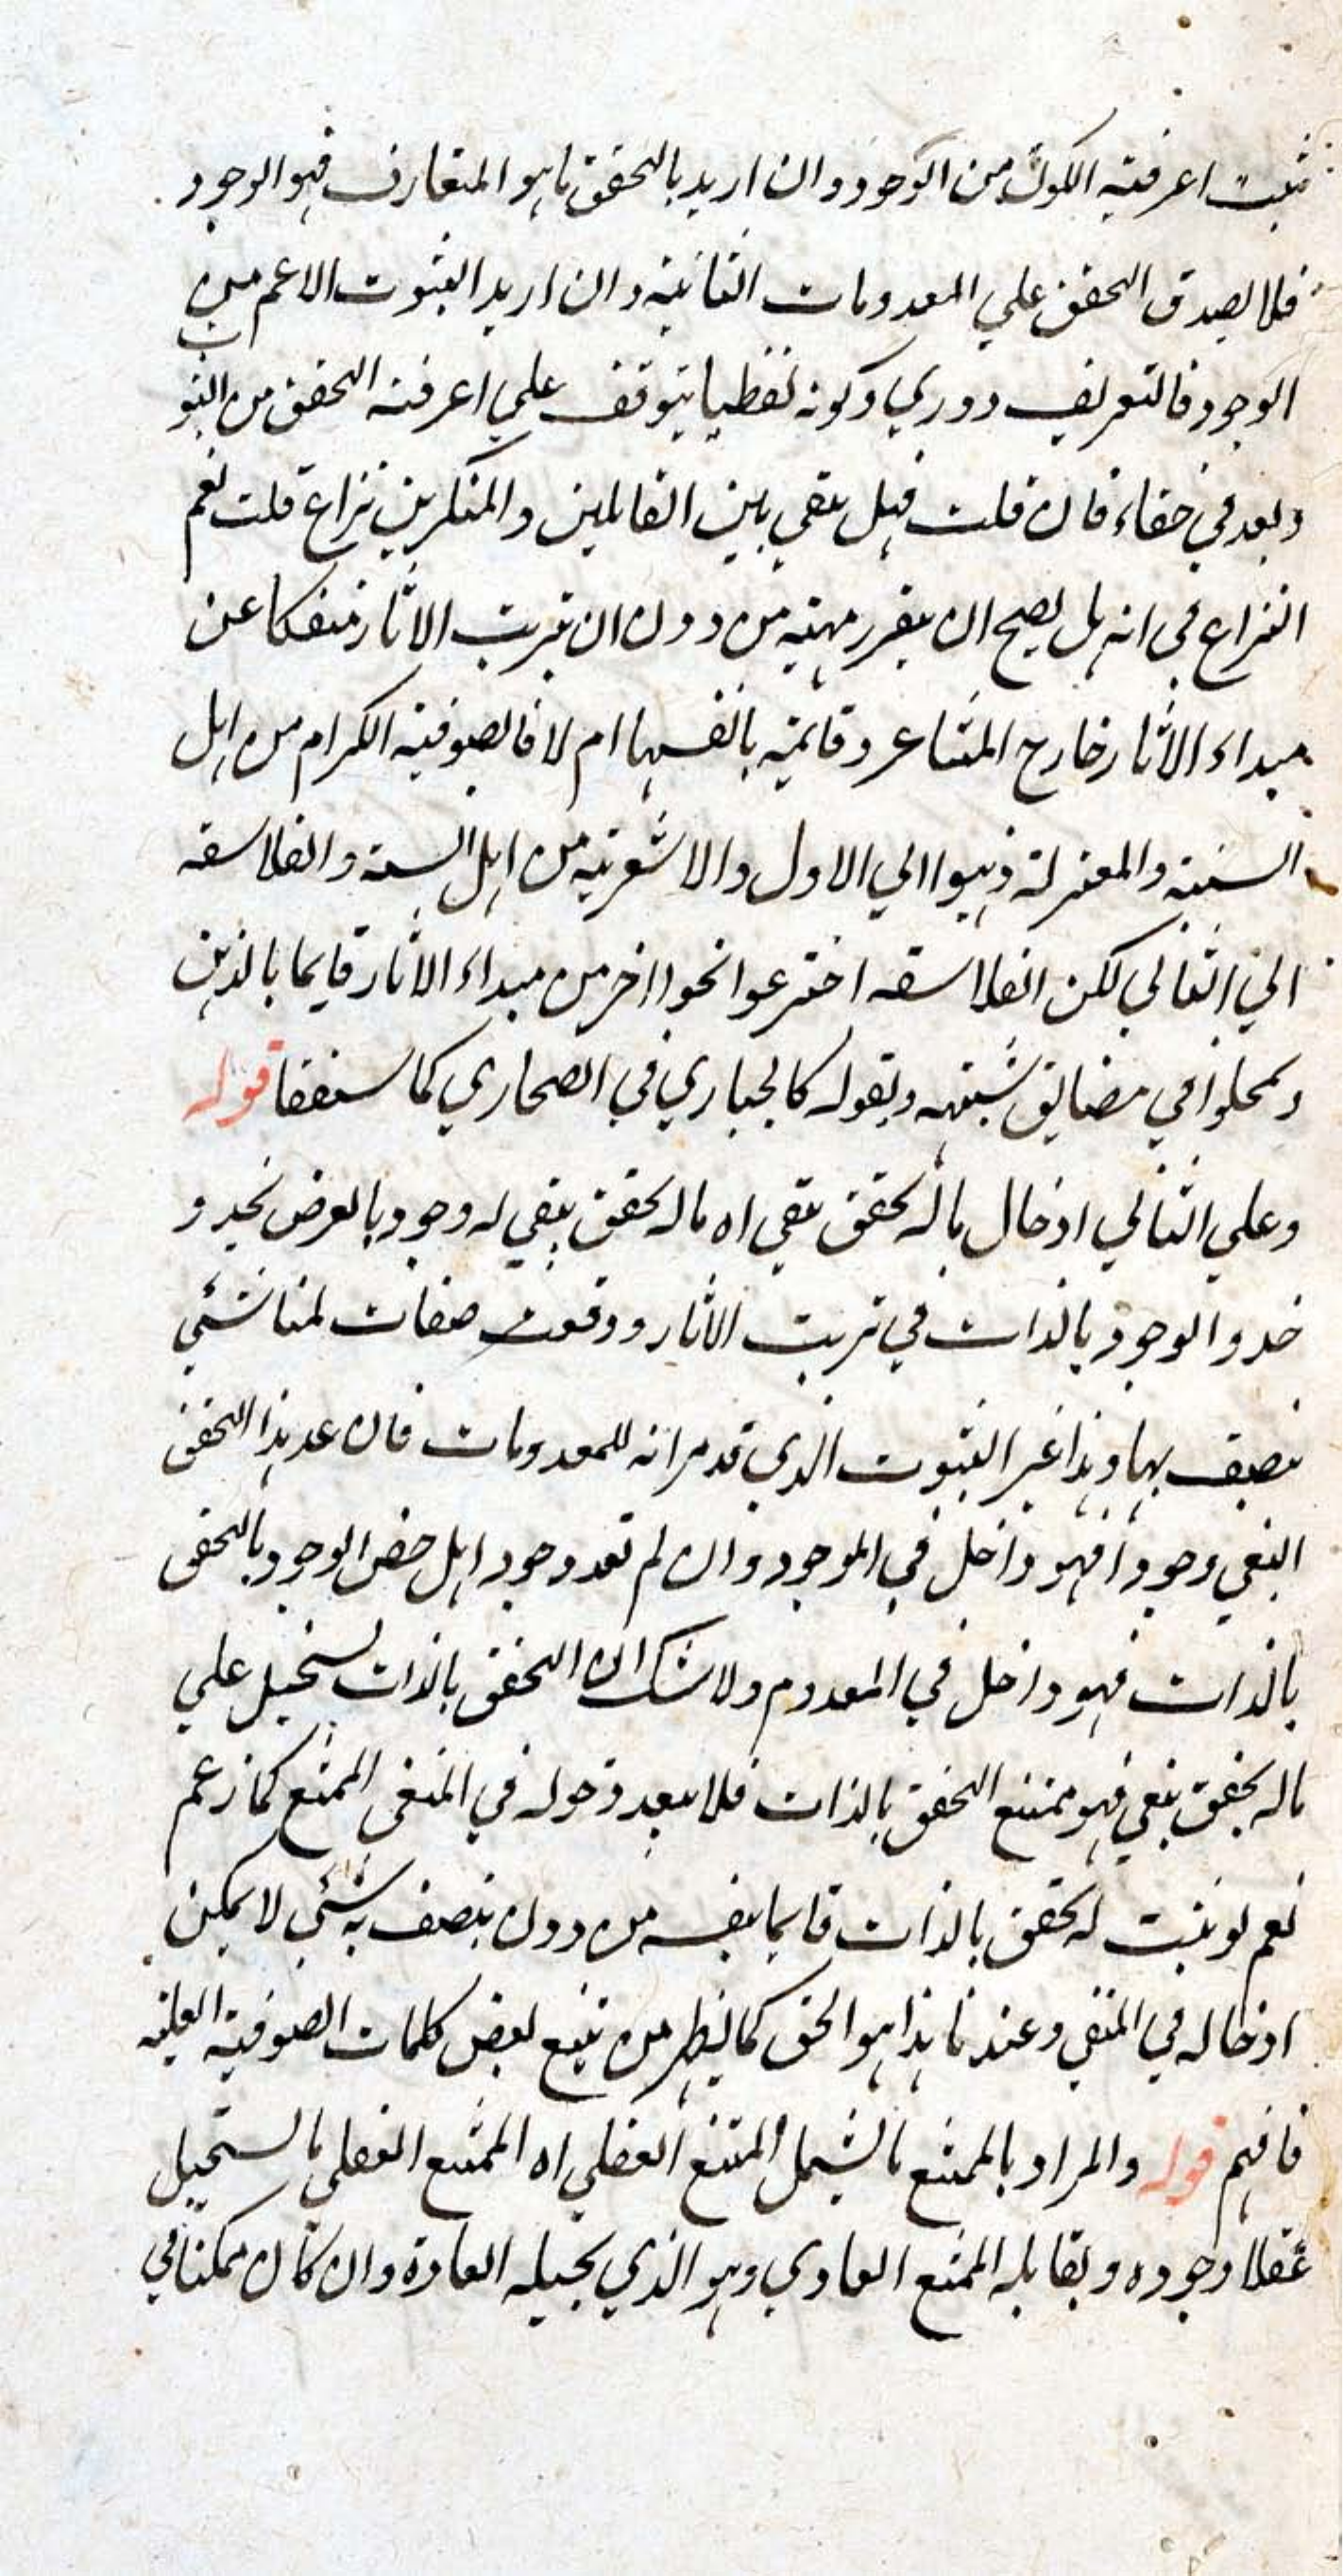 يثبت اعرفية الكون من الوجود وان اريد بالتحقق ما هو المتعارف فهو الوجود
فلا يصدق التحقق علي المعدومات الثابتة وان اريد الثبوت الاعم من
الوجود فالتعريف دوري وكونه لفظيا يتوقف علي اعرفية التحقق من الثبوت
وبعد في خفاء فان قلت فهل بقي بين القائلين والمنكرين نزاع قلت نعم
النزاع في انه هل يصح ان يتقرر مهية من دون ان يترتب الاثار منفكا عن
مبداء الاثار خارج المشاعر وقائمة بانفسها ام لا فالصوفية الكرام من اهل
السنة والمعتزلة ذهبوا الي الاول والاشعرية من اهل السنة والفلاسفه
الي الثاني لكن الفلاسفه اخترعوا نحوا اخر من مبداء الاثار قايما بالذهن
في مضايق وبقوله كالحباري في الصحاري كما ستقف قوله
وعلي الثاني ادخال ما له تحقق تبعي اه ما له تحقق تبعي له وجود بالعرض يحذو
حذو الوجود بالذات في ترتب الاثار ووقعت صفات لمنا شئي
يتصف بها وهذا غير الثبوت الذي قد مر انه للمعدومات فان عد هذا التحقق
التبعي وجودا فهو داخل في الموجود وان لم تعد وجودا بل خص الوجود بالتحقق
بالذات فهو داخل في المعدوم ولا شك ان التحقق بالذات يستحيل علي
ما له تحقق تبعي فهو ممتنع التحقق بالذات فلا يبعد دخوله في المنفي الممتنع كما زعم
نعم لو يثبت له تحقق بالذات قايما بنفسه من دون يتصف به شئي لا يمكن
ادخاله في المنفي وعندنا هذا هو الحق كما يظهر من تتبع بعض كلمات الصوفية العلية
فافهم قوله والمراد بالممتنع ما يشمل الممتنع العقلي اه الممتنع العقلي ما يستحيل
عقلا وجوده ويقابله الممتنع العادي وهو الذي يحيله العادة وان كان ممكنا في